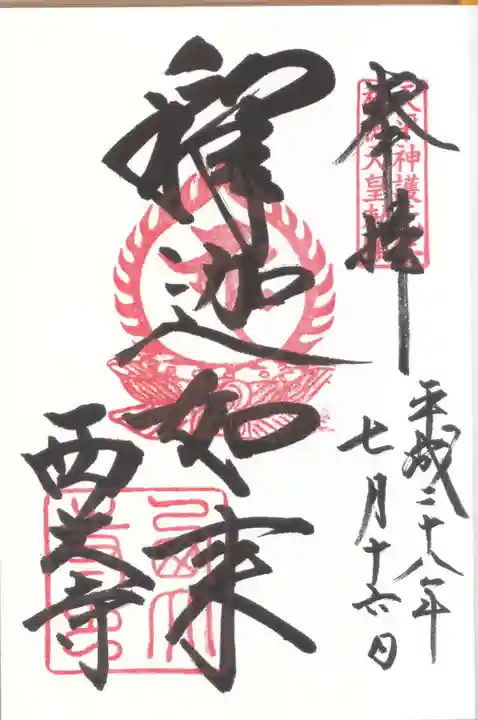 奉拝
天平神護
天皇
平成二十八年
七月十六日
釋迦如来
西大寺